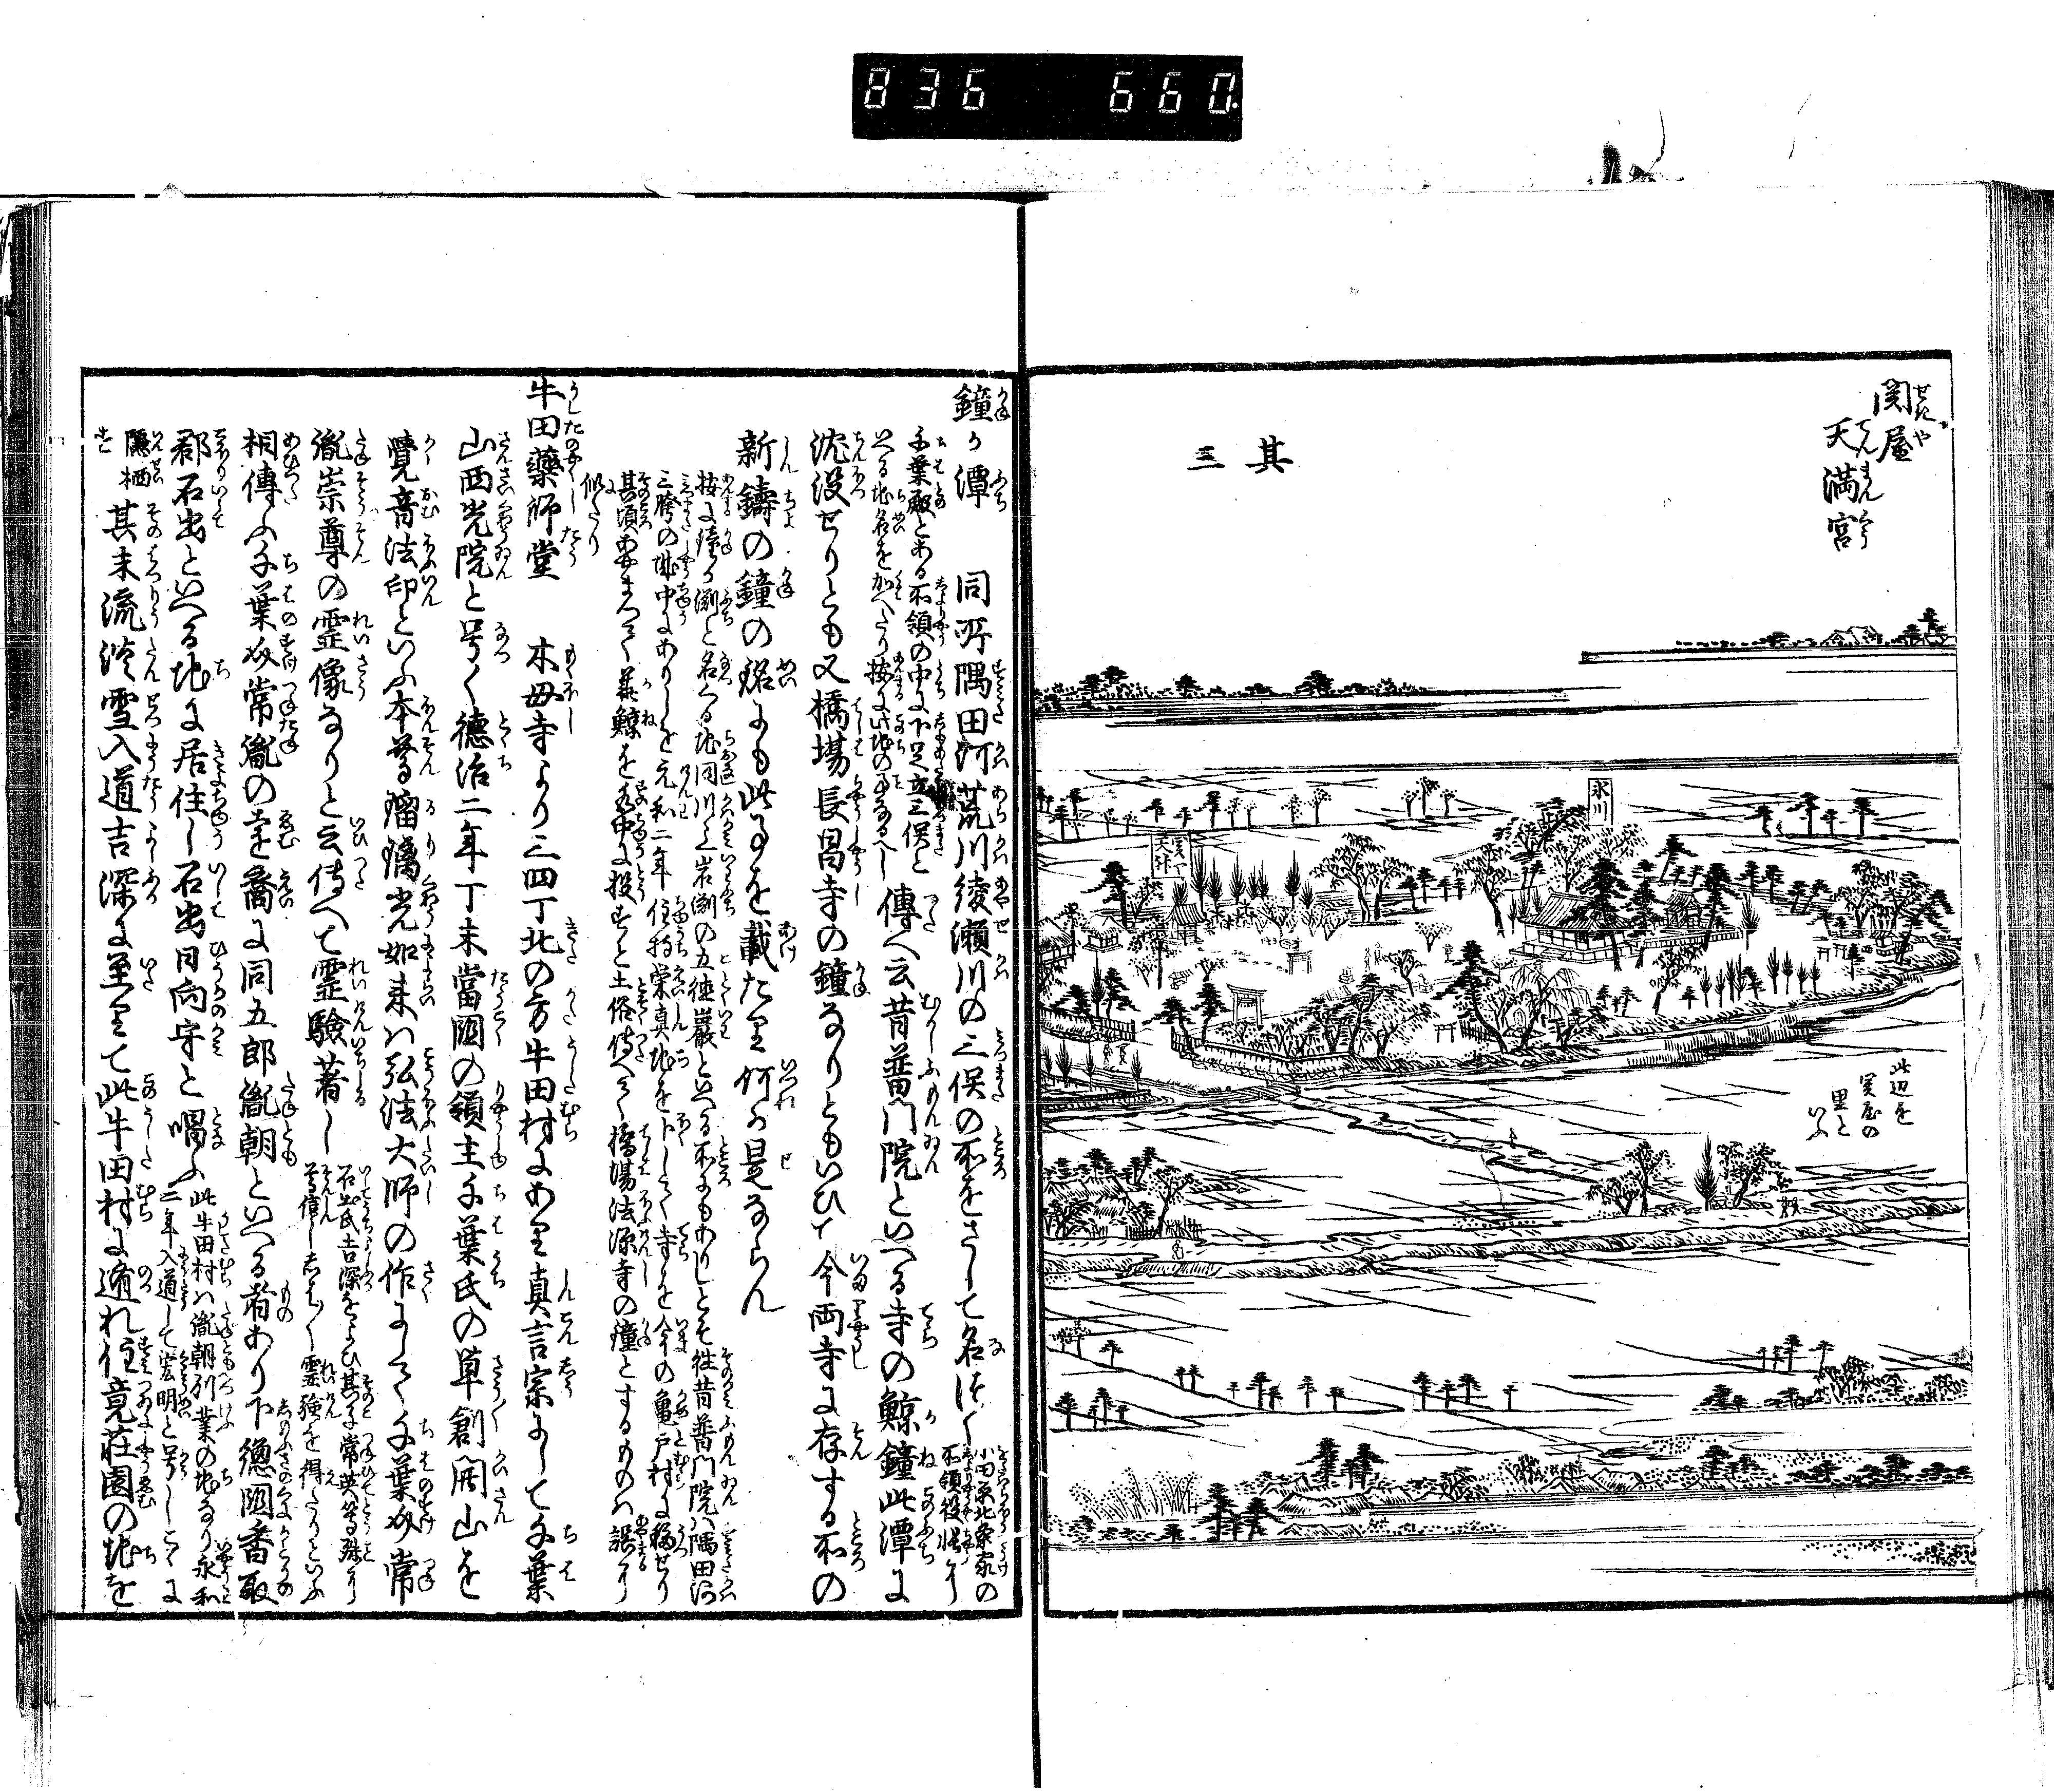 836 660.
関屋
天満宮
其三
氷川
関や
天神
此辺を
関屋の
里と
いふ
鐘か潭 同所隅田河荒川綾瀬川の三俣の所をさして名つく 小田原北条家の
所領役帳に
千葉殿とある所領の中に下足立三俣と
いへる地名を加へたり按に此地の事なるへし 傳へ云昔普門院といへる寺の鯨鐘此潭に
沈没せりとも又橋場長昌寺の鐘なりともいひて今両寺に存する所の
新鑄の鐘の銘にも此事を載たり何か是ならん
按に鐘か淵と名くる地同川に岩淵の五徳巖といへる所にもありしとそ往昔普門院ハ隅田河
三胯の城中にありしを元和二年住持栄真地を卜して寺を今の亀戸村に移せり
其頃あやまつて華鯨を水中に投すと土俗傳へて橋場法源寺の鐘とするものハ誤に
似たり
牛田藥師堂 木母寺より三四丁北の方牛田村にあり真言宗にして千葉
山西光院と号く徳治二年丁未當國の領主千葉氏の草創開山を
覺音法印といふ本尊瑠璃光如来ハ弘法大師の作にして千葉介常
胤崇尊の霊像なりと云傳へて霊驗著し 石出氏吉深をよひ其子常英等殊に
尊信ししは〱霊驗を得たりといふ
相傳ふ千葉介常胤の遠裔に同五郎胤朝といへる者あり下總國香取
郡石出といへる地に居住し石出日向守と唱ふ 此牛田村ハ胤朝別業の地なり永和
二年入道して宏明と号しこゝに
隱栖
す 其末流淡雪入道吉深に至りて此牛田村に遁れ住竟莊園の地を